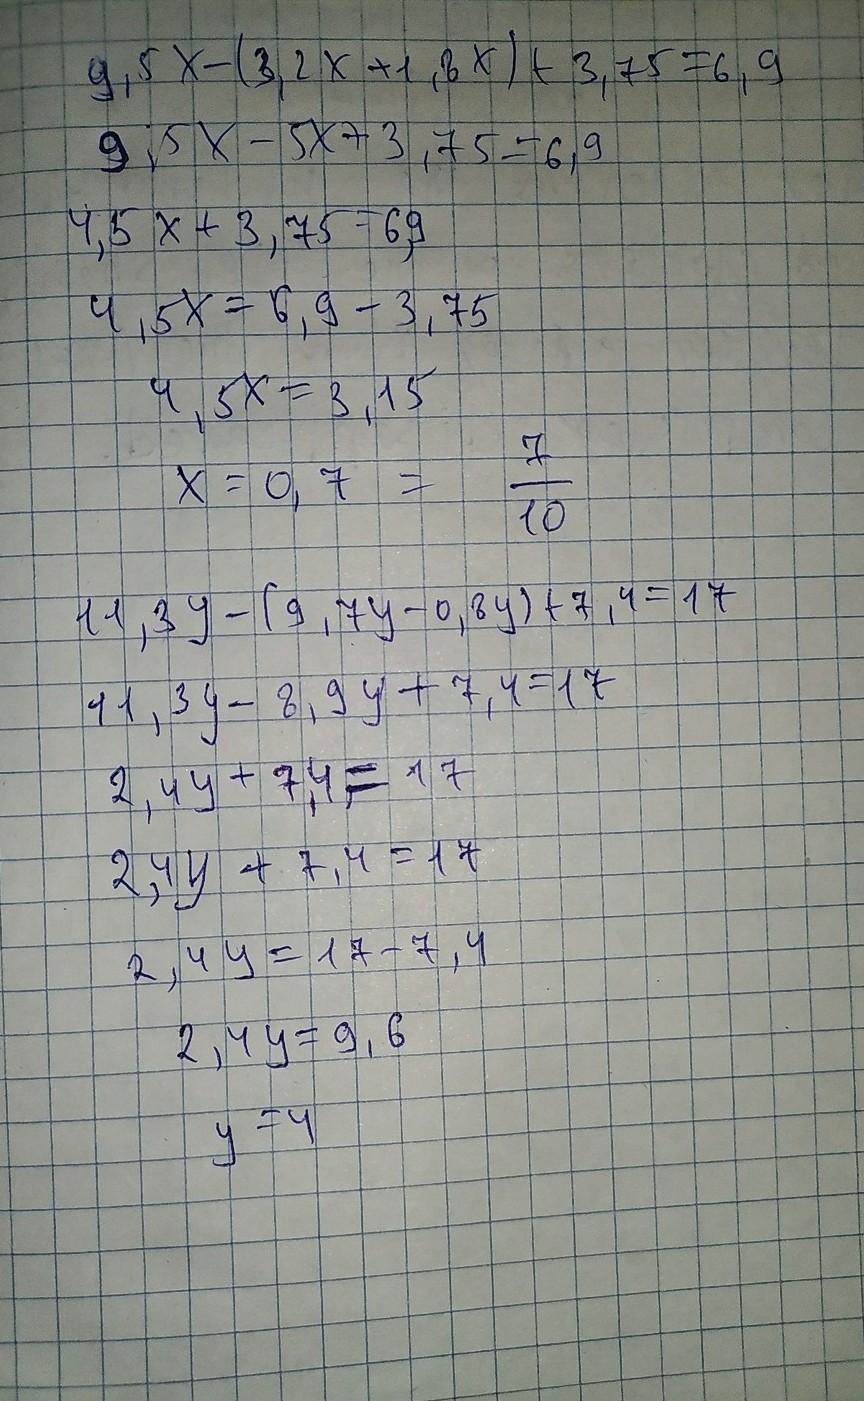 9,5x-(3,2x+1,8x)+3,75=6,9
9,5x-5x+3,75=6,9
4,5x+3,75=6,9
4,5x=6,9-3,75
4,5x=3,15
x=0,7 = 7/10
11,3y-(9,7y-0,8y)+7,4=17
11,3y-8,9y+7,4=17
2,4y+7,4=17
2,4y+7,4=17
2,4y=17-7,4
2,4y=9,6
y=4